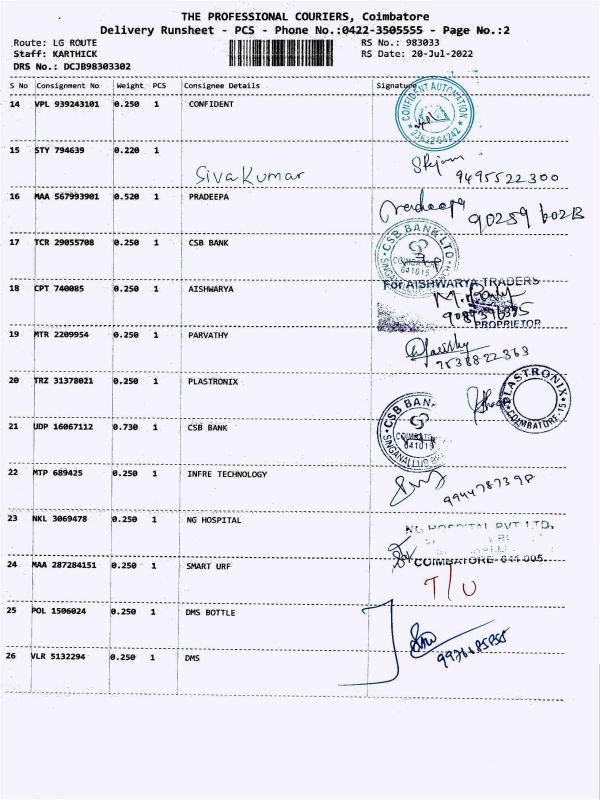 THE PROFESSIONAL COURIERS, Coimbatore
Delivery Runsheet - PCS - Phone No.:0422-3505555 - Page No.:2
Route: LG ROUTE RS No.: 983033
Staff: KARTHICK RS Date: 20-Jul-2022
DRS No.: DCJB98303302
S No Consignment No Weight PCS Consignee Details Signature
14 VPL 939243101 0.250 1 CONFIDENT
CONFIDENT AUTOMATION
15 STY 794639 0.220 1
Sivakumar
9495522300
16 MAA 567993901 0.520 1 PRADEEPA
Pradeepa
17 TCR 29055708 0.250 1 CSB BANK
CSB BANK LTD
641015
18 CPT 740085 0.250 1 AISHWARYA
For AISHWARYA TRADERS
PROPRIETOR
19 MTR 2209954 0.250 1 PARVATHY
7538822863
20 TRZ 31378021 0.250 1 PLASTRONIX
PLASTRONIX
COIMBATORE-15
21 UDP 16067112 0.730 1 CSB BANK
CSB BANK
641015
22 MTP 689425 0.250 1 INFRE TECHNOLOGY
9944787398
23 NKL 3069478 0.250 1 NG HOSPITAL
NG HOSPITAL PVT LTD.
COIMBATORE 641 005.
24 MAA 287284151 0.250 1 SMART URF
T/U
25 POL 1506024 0.250 1 DMS BOTTLE
26 VLR 5132294 0.250 1 DMS